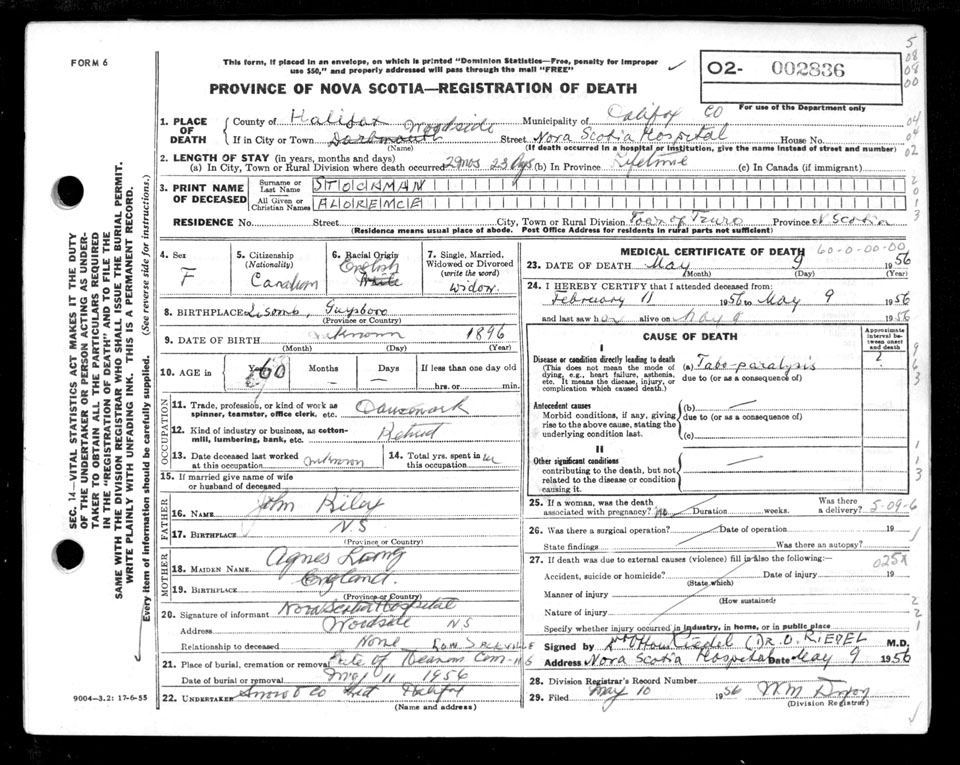 FORM 6
This form, if placed in an envelope, on which is printed "Dominion Statistics—Free, penalty for improper
use $50," and properly addressed will pass through the mail "FREE"
O2- 002836
For use of the Department only
PROVINCE OF NOVA SCOTIA—REGISTRATION OF DEATH
1. PLACE OF DEATH
County of Halifax Municipality of Halifax Co
If in City or Town Dartmouth Woodside Street Nova Scotia Hospital House No.
(Name) (If death occurred in a hospital or institution, give the name instead of street and number)
2. LENGTH OF STAY (in years, months and days)
(a) In City, Town or Rural Division where death occurred 2 mos 23 dys (b) In Province Lifetime (c) In Canada (if immigrant)
3. PRINT NAME OF DECEASED
Surname or Last Name STOCKMAN
All Given or Christian Names
RESIDENCE No. Street City, Town or Rural Division Town of Truro Province N Scotia
(Residence means usual place of abode. Post Office Address for residents in rural parts not sufficient)
4. Sex F
5. Citizenship (Nationality) Canadian
6. Racial Origin English White
7. Single, Married, Widowed or Divorced (write the word) Widow
8. BIRTHPLACE Liscomb, Guysboro
(Province or Country)
9. DATE OF BIRTH unknown 1896
(Month) (Day) (Year)
10. AGE in Years 60 Months — Days — If less than one day hrs. or min.
OCCUPATION
11. Trade, profession, or kind of work as spinner, teamster, office clerk, etc. Housework
12. Kind of industry or business, as cotton-mill, lumbering, bank, etc. Retired
13. Date deceased last worked at this occupation unknown
14. Total yrs. spent in this occupation
15. If married give name of wife or husband of deceased
FATHER
16. NAME John Riley
17. BIRTHPLACE N.S
(Province or Country)
MOTHER
18. MAIDEN NAME Agnes Lang
19. BIRTHPLACE England.
(Province or Country)
20. Signature of informant Nova Scotia Hospital
Address Woodside NS
Relationship to deceased None
21. Place of burial, cremation or removal Gate of Heaven Cem Low Sackville NS
Date of burial or removal May 11 1956
22. UNDERTAKER Snow & Co Ltd Halifax
(Name and address)
MEDICAL CERTIFICATE OF DEATH 60-0-00-00
23. DATE OF DEATH May 9 1956
(Month) (Day) (Year)
24. I HEREBY CERTIFY that I attended deceased from:
February 11 1956 to May 9 1956
and last saw h er alive on May 9 1956
CAUSE OF DEATH
Approximate interval between onset and death
I
Disease or condition directly leading to death (a) Tabo-paralysis ?
(This does not mean the mode of dying, e.g., heart failure, asthenia, etc. It means the disease, injury, or complication which caused death.)
due to (or as a consequence of)
Antecedent causes (b) —
Morbid conditions, if any, giving rise to the above cause, stating the underlying condition last.
due to (or as a consequence of)
(c)
II
Other significant conditions —
contributing to the death, but not related to the disease or condition causing it.
25. If a woman, was the death associated with pregnancy? no Duration weeks. Was there a delivery? 5-09-6
26. Was there a surgical operation? Date of operation 19
State findings Was there an autopsy?
27. If death was due to external causes (violence) fill in also the following: 025x
Accident, suicide or homicide? Date of injury 19
(State which)
Manner of injury
(How sustained)
Nature of injury
Specify whether injury occurred in industry, in home, or in public place
Signed by Riedel (DR. O. RIEDEL M.D.
Address Nova Scotia Hospital Date May 9 1956
28. Division Registrar's Record Number
29. Filed May 10 1956 Wm Dixon
(Division Registrar)
SEC. 14—VITAL STATISTICS ACT MAKES IT THE DUTY
OF THE UNDERTAKER OR PERSON ACTING AS UNDER-
TAKER TO OBTAIN ALL THE PARTICULARS REQUIRED
IN THE "REGISTRATION OF DEATH" AND TO FILE THE
SAME WITH THE DIVISION REGISTRAR WHO SHALL ISSUE THE BURIAL PERMIT.
WRITE PLAINLY WITH UNFADING INK. THIS IS A PERMANENT RECORD.
Every item of information should be carefully supplied. (See reverse side for instructions.)
9004-3.2: 17-6-55